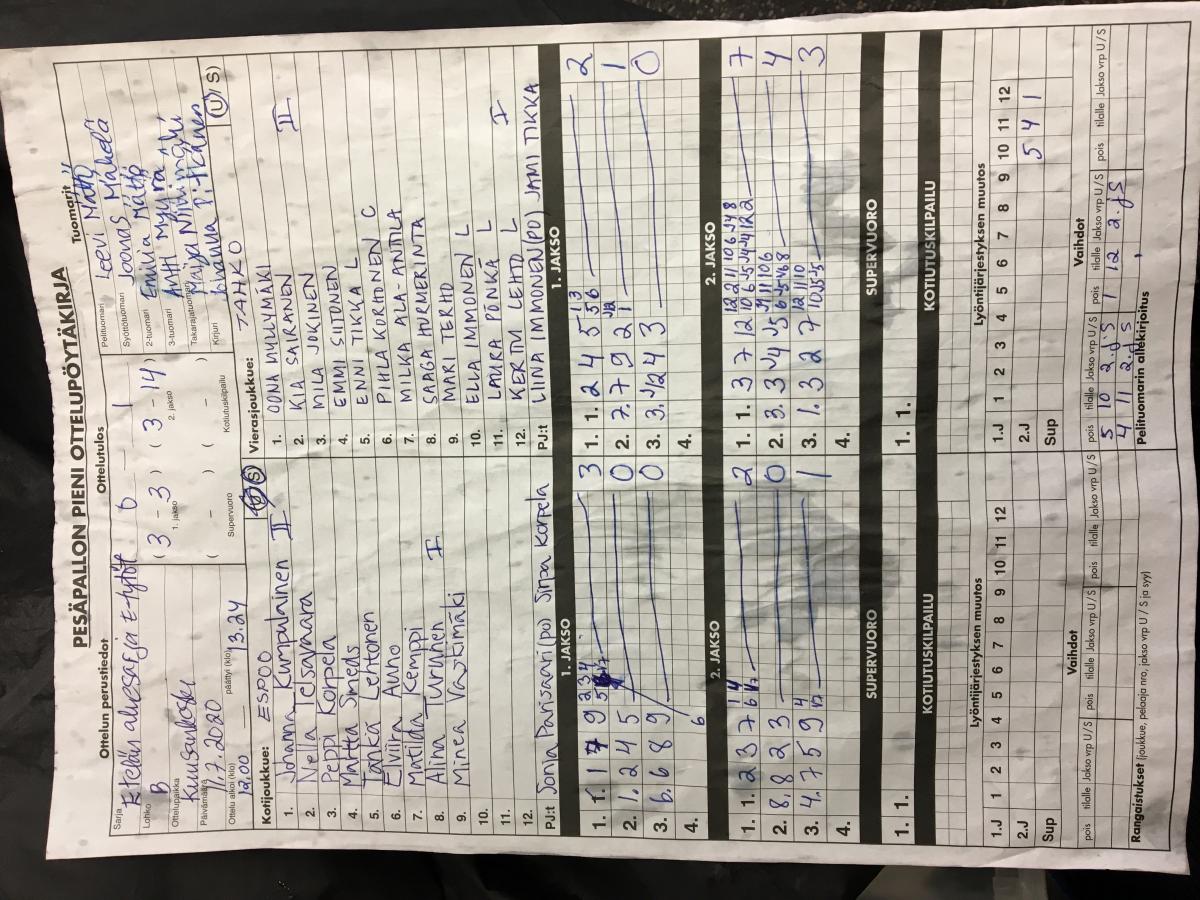 PESÄPALLON PIENI OTTELUPÖYTÄKIRJA
Ottelun perustiedot
Ottelutulos
Tuomarit
Sarja Etelän aluesarja E-tytöt
Lohko B
Ottelupaikka Kuusankoski
Päivämäärä 1.2.2020
Ottelu alkoi (klo) 12.00 päättyi (klo) 13.24
0 — 1
(3 - 3) (3 - 14)
1. jakso 2. jakso
( - ) ( - )
Supervuoro Kotiutuskilpailu
Pelituomari Leevi Mättö
Syöttötuomari Joonas Mähelä
2-tuomari Emilia Mättö
3-tuomari Antti Myyrä
Takarajatuomari Maija
Kirjuri Pitkänen
Kotijoukkue: ESPOO (U/S)
1. Joanna Kumpulainen II
2. Nella
3. Peppi Korpela
4. Martta Smeds
5. Lehtonen
6. Elviira Auno
7. Matilda Kemppi
8. Alina Turunen I
9. Minea Vaskimäki
10.
11.
12.
PJ:t Sonja Parisaari (po) Sirpa Korpela
Vierasjoukkue: TAHKO (U/S)
1. OONA MYLLYMÄKI
2. KIA SAIRANEN II
3. MILA JOKINEN
4. EMMI SIITONEN
5. ENNI TIKKA L
6. PIHLA KORHONEN C
7. MILKA ALA-ANTILA
8. SAAGA HURMERINTA
9. MARI TERHO
10. ELLA IMMONEN L
11. LAURA PÖNKÄ L I
12. KERTTU LEHTO L
PJ:t LIINA IMMONEN (PO) JAMI TIKKA
1. JAKSO
1. 1. 1 7 9 5 3
2. 1. 2 4 5 0
3. 6. 6 8 9 0
4. 6
1. JAKSO
1. 1. 2 4 5 2
2. 7. 7 9 2 1 1
3. 3. 12 4 3 0
4.
2. JAKSO
1. 1. 2 3 7 2
2. 8. 8 2 3 0
3. 4. 7 5 9 1
4.
2. JAKSO
1. 1. 3 7 12 7
2. 3. 3 4
3. 1. 3 2 7 3
4.
SUPERVUORO
1. 1.
SUPERVUORO
1. 1.
KOTIUTUSKILPAILU
KOTIUTUSKILPAILU
Lyöntijärjestyksen muutos
1.J 1 2 3 4 5 6 7 8 9 10 11 12
2.J
Sup
Lyöntijärjestyksen muutos
1.J 1 2 3 4 5 6 7 8 9 10 11 12
2.J 5 4 1
Sup
Vaihdot
pois tilalle Jakso vrp U / S pois tilalle Jakso vrp U / S pois tilalle Jakso vrp U / S
Vaihdot
pois tilalle Jakso vrp U / S pois tilalle Jakso vrp U / S pois tilalle Jakso vrp U / S
5 10 2.js 1 12 2.js
4 11 2.js
Rangaistukset (joukkue, pelaaja nro, jakso vrp U / S ja syy)
Pelituomarin allekirjoitus